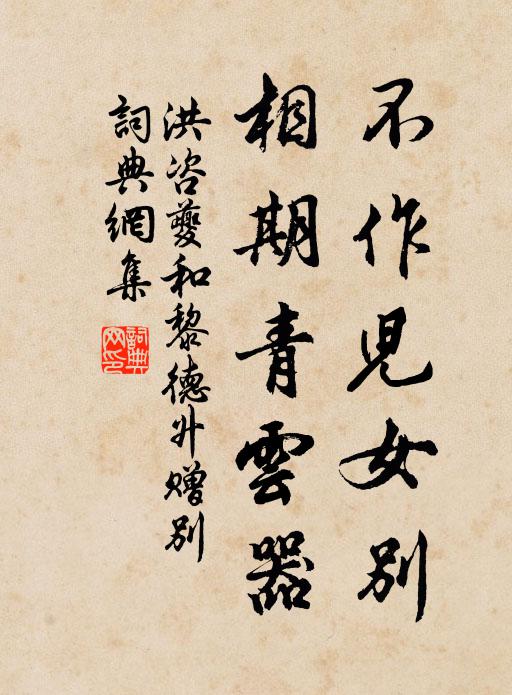 不作兒女別
相期青雲器
洪咨夔和黎德升贈別
詞典網集
詞典網印